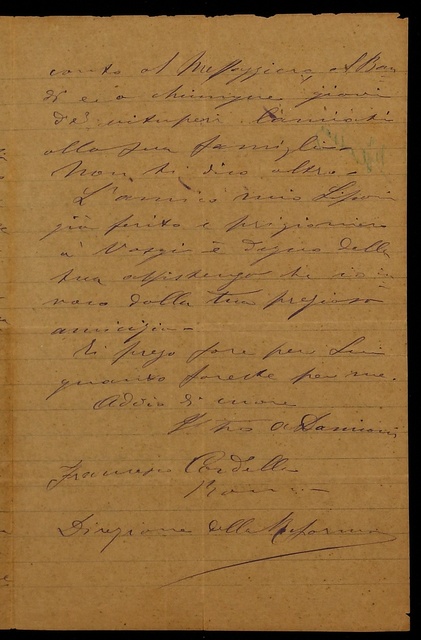 conto al Messaggiero, al Ban
di e a chiunque giovi
vituperi lanciati
alla sua famiglia
Non ti dico altro.
L'amico mio
già ferito e prigioniero
a Vosgi è degno della
tua assistenza che io in
voco dalla tua preziosa
amicizia
Ti prego fare per Lui
quanto fareste per me.
Addio di cuore
A Damiani
Francesco Cardella
Roma
Direzione della Riforma